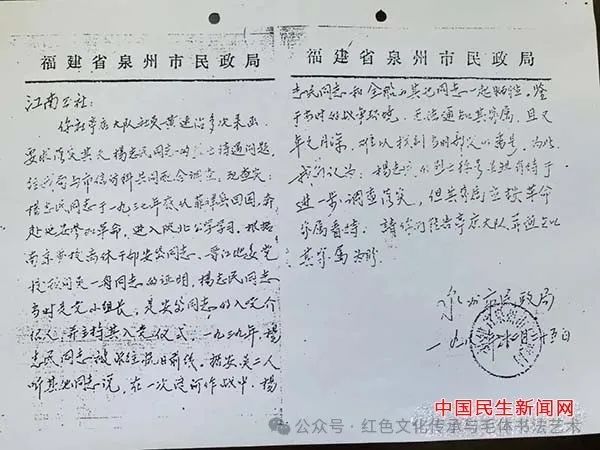 福建省泉州市民政局
江南公社:
你社亭店大队社员黄建治多次来函
要求落实其父杨志民同志的烈士待遇问题,
经我局与市信访科共同配合调查,现查实:
杨志民同志于一九三七年底从菲律宾回国,奔
赴地参加革命,进入陕北公学学习。根据
南京学校离休干部安岱同志、晋江地委党
校顾问吴一舟同志的证明,杨志民同志
当时是党小组长,是安岱同志的入党介
绍人,并主持其入党仪式。一九三九年,杨
志民同志被派往抗日前线。据安、吴二人
听其他同志说,在一次过河作战中,杨
福建省泉州市民政局
志民同志和全船其他同志一起牺牲。鉴
于当时的战争环境,无法通知其家属,且又
年久月深,难以找到当时部队番号,为此,
我们认为:杨志民的烈士称号虽然有待于
进一步调查落实,但其家属应按革命
家属看待。请你们转告亭店大队并通知
其家属为盼
泉州市民政局
一九八 年十二月二十五日
中国民生新闻网
公众号·红色文化传承与毛体书法艺术